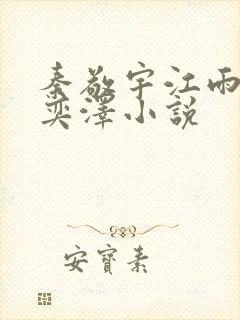 秦敬宇江雨
奕澤小説
安寶素